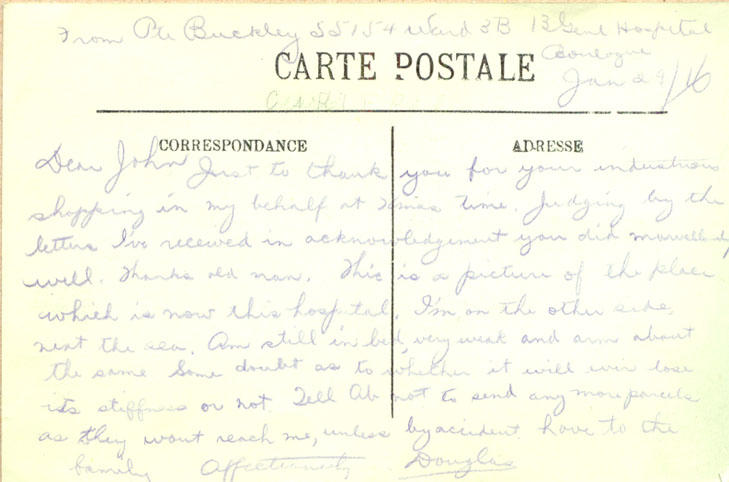 From Pte Buckley 55154 Ward 3B 13 Genl Hospital
Boulogne
CARTE POSTALE
Jan 29/16
CORRESPONDANCE
ADRESSE
Dear John Just to thank you for your industrious
shopping in my behalf at Xmas time. Judging by the
letters I've received in acknowledgement you did marvellously
well. Thanks old man. This is a picture of the place
which is now this hospital. I'm on the other side,
next the sea. Am still in bed, very weak and arm about
the same Some doubt as to whether it will ever lose
its stiffness or not. Tell Ab not to send any more parcels
as they wont reach me, unless by accident. Love to the
family Affectionately Douglas